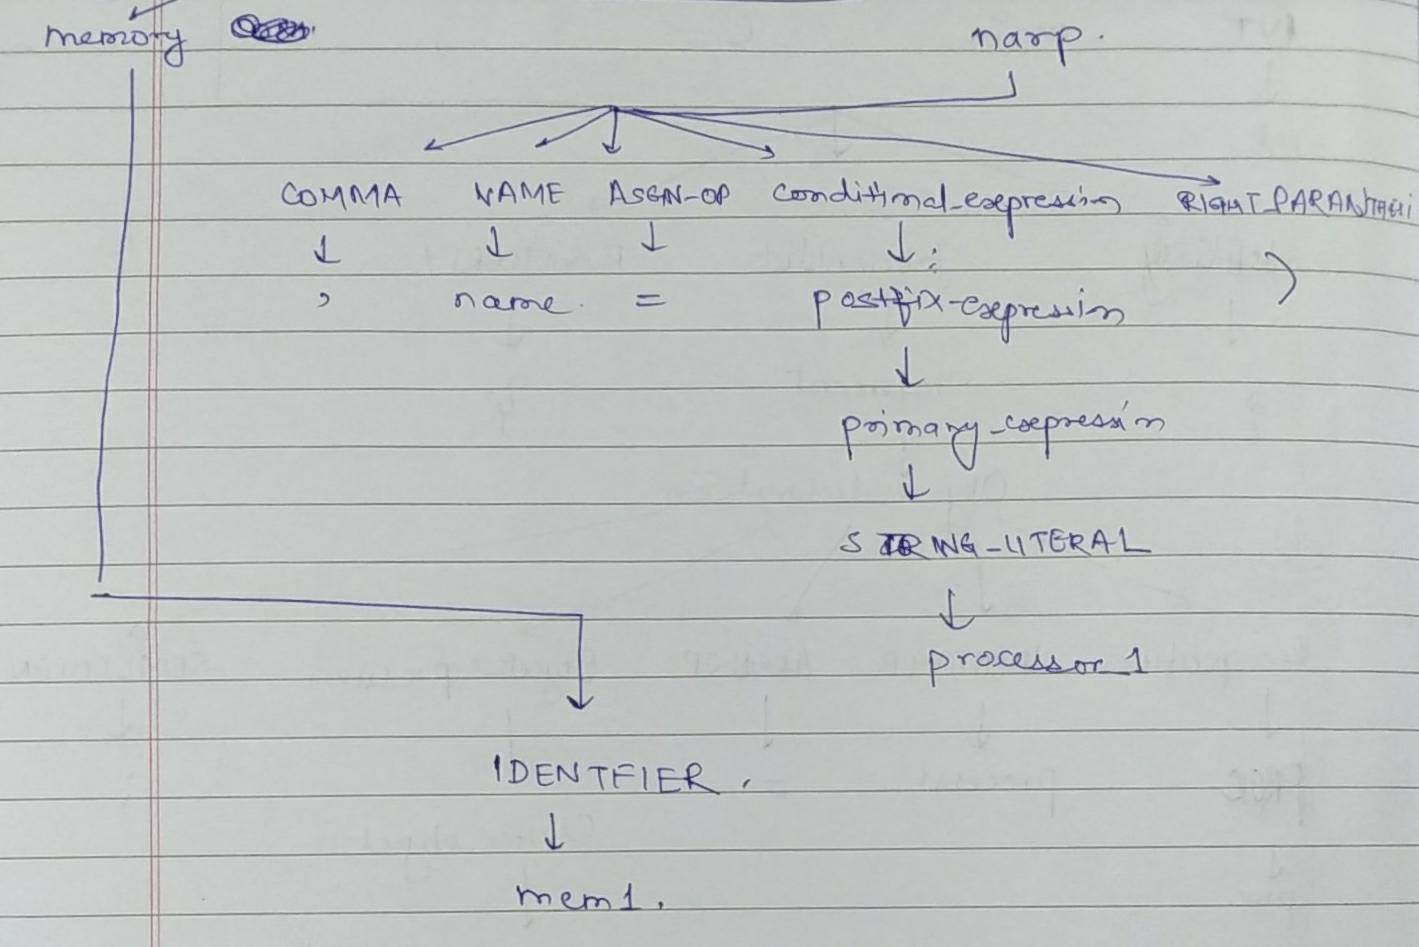 memory narp.
COMMA NAME ASGN-OP conditional-expression RIGHT_PARANTHESI
, name. = postfix-expression )
primary-expression
STRING-LITERAL
processor1
IDENTFIER.
mem1.